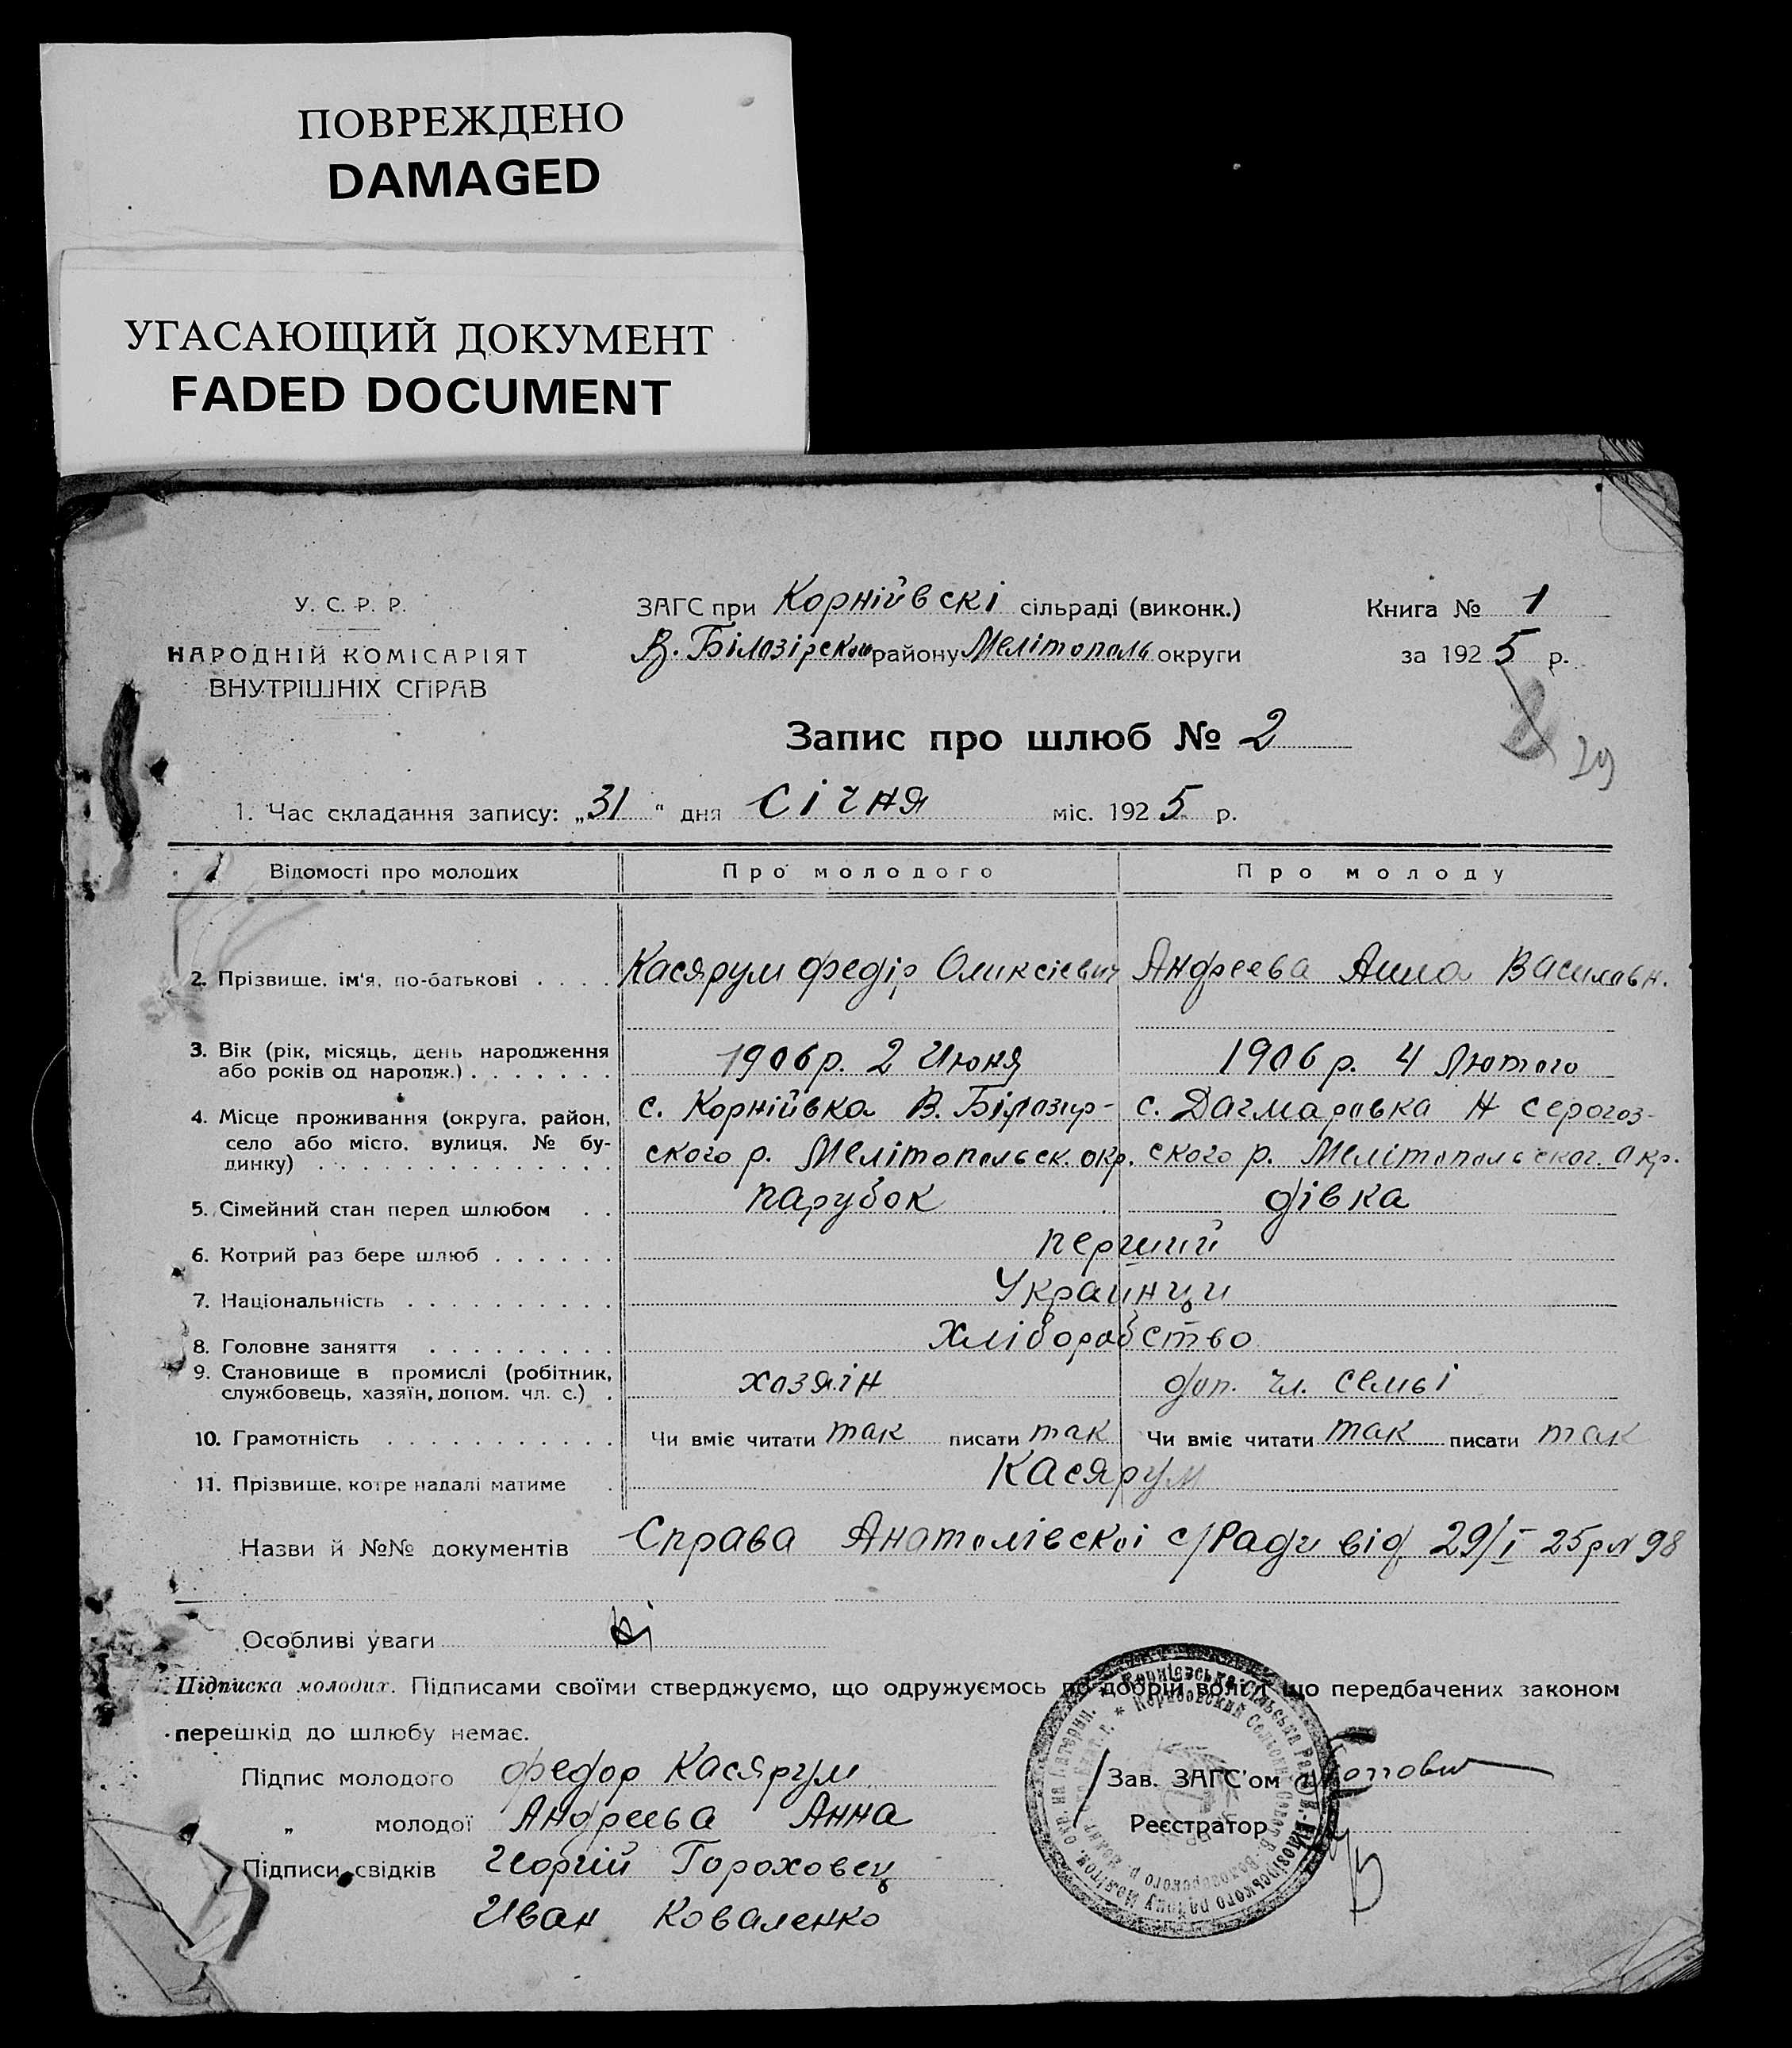 ПОВРЕЖДЕНО
DAMAGED
УГАСАЮЩИЙ ДОКУМЕНТ
FADED DOCUMENT
У. С. Р. Р.
НАРОДНІЙ КОМІСАРІЯТ
ВНУТРІШНІХ СПРАВ
ЗАГС при Корнійвскі сільраді (виконк.)
В. Білозірском району Мелітополь округи
Книга № 1
за 1925 р.
29
Запис про шлюб № 2
1. Час складання запису: „31" дня Січня міс. 1925 р.
Відомості про молодих Про молодого Про молоду
2. Прізвище, ім'я, по-батькові . . . . Касярум Федір Оликсієвич Андреева Анна Васильвн.
3. Вік (рік, місяць, день народження
або років од народж.) . . . . . . . 1906 р. 2 Июня 1906 р. 4 Лютого
4. Місце проживання (округа, район,
село або місто, вулиця, № бу-
динку) . . . . . . . . . . . . . .
с. Корнійвка В. Білозир-
ского р. Мелітопольск. окр.
с. Дагмаровка Н Серогоз-
ского р. Мелітопольског. окр.
5. Сімейний стан перед шлюбом . . парубок дівка
6. Котрий раз бере шлюб . . . . . . перший
7. Національність . . . . . . . . . . Украинци
8. Головне заняття . . . . . . . . . Хліборобство
9. Становище в промислі (робітник,
службовець, хазяїн, допом. чл. с.) . хозяін доп. чл. семьі
10. Грамотність . . . . . . . . . . . Чи вміє читати так писати так Чи вміє читати так писати так
11. Прізвище, котре надалі матиме . Касярум
Назви й №№ документів Справа Анатолівскоі с/Ради від 29/I 25р № 98
Особливі уваги
Підписка молодих. Підписами своїми стверджуємо, що одружуємось по добрій волі й що передбачених законом
перешкід до шлюбу немає.
Підпис молодого Федор Касярум
„ молодої Андреева Анна
Підписи свідків Георгій Гороховец
Иван Коваленко
Зав. ЗАГС'ом
Реєстратор